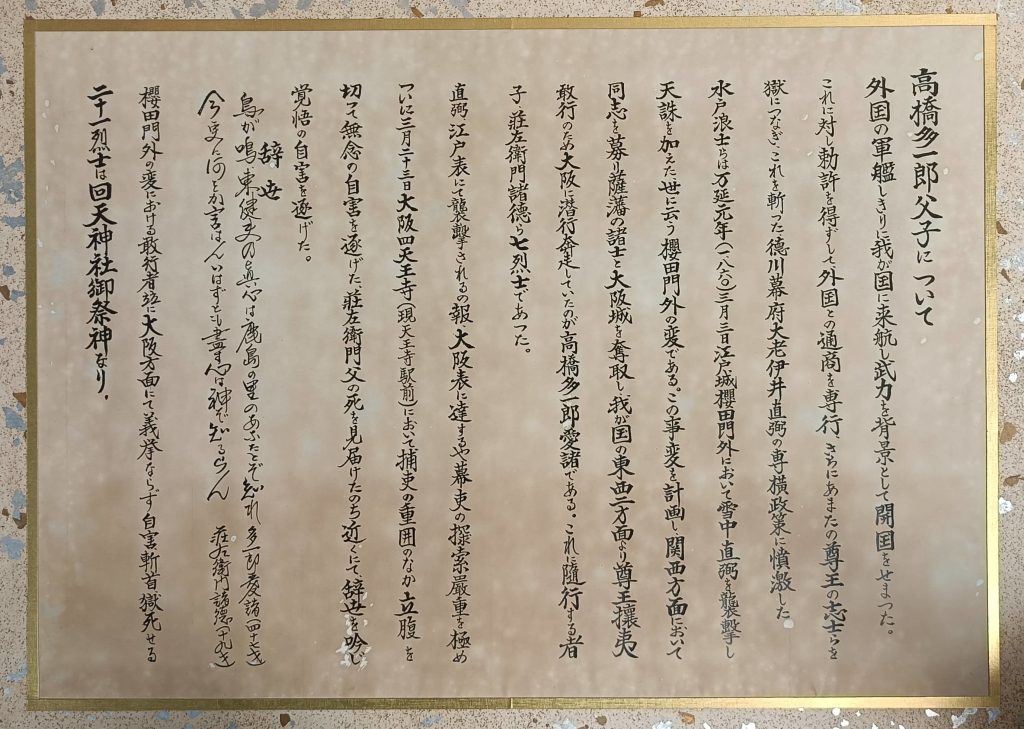 高橋多一郎父子について
外国の軍艦しきりに我が国に来航し武力を背景として開国をせまった。
これに対し勅許を得ずして外国との通商を専行、さらにあまたの尊王の志士らを
獄につなぎ、これを斬った徳川幕府大老伊井直弼の専横政策に憤激した
水戸浪士らは万延元年(一八六〇)三月三日江戸城櫻田門外において雪中直弼を襲撃し
天誅を加えた世に云う櫻田門外の変である。この事変を計画し関西方面において
同志を募り薩藩の諸士と大阪城を奪取し、我が国の東西二方面より尊王攘夷
敢行のため大阪に潜行奔走していたのが高橋多一郎愛諸である。これに随行する者
子荘左衛門諸徳ら七烈士であった。
直弼江戸表にて襲撃されるの報大阪表に達するや幕吏の探索厳重を極め
ついに三月二十三日大阪四天王寺(現天王寺駅前)において捕吏の重囲のなか立腹を
切って無念の自害を遂げた、荘左衛門父の死を見届けたのち近くにて辞世を吟じ
覚悟の自害を遂げた。
辞世
鳥が鳴東健夫の真心は鹿島の里のあふたとぞ知れ 多一郎愛諸(四十七才)
今更に何とか言はんいはずとも盡す心は神ぞ知るらん 荘左衛門諸徳(十九才)
櫻田門外の変における敢行者竝に大阪方面にて義挙ならず自害斬首獄死せる
二十一烈士は回天神社御祭神なり.